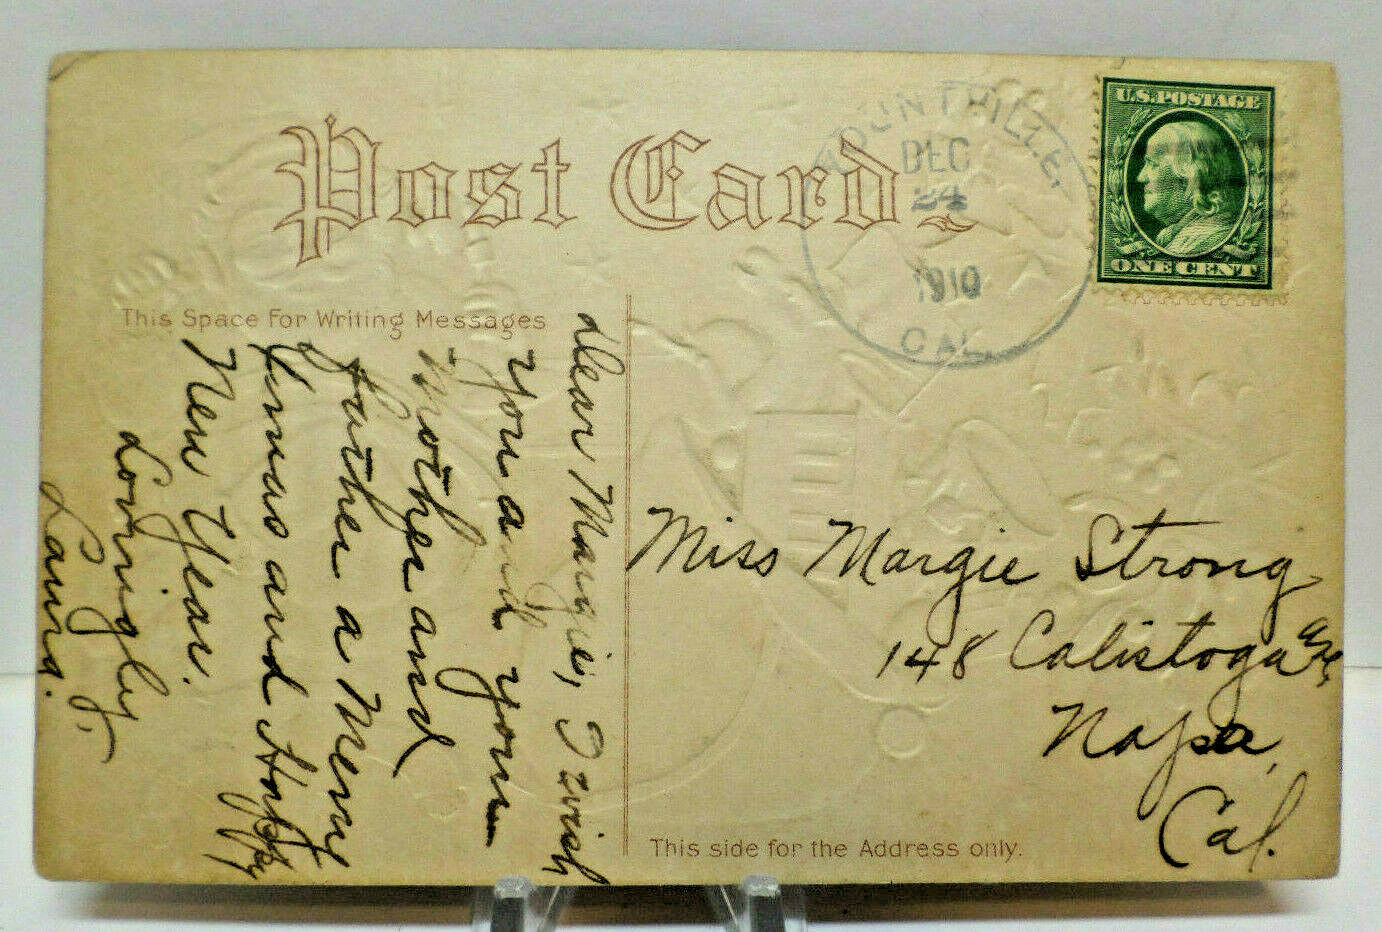 Post Card
YOUNTVILLE,
DEC
24
1910
CAL.
U.S. POSTAGE
ONE CENT
This Space For Writing Messages
Dear Margie, I wish
you and your
Mother and
father a Merry
Xmas and Happy
New Year.
Lovingly,
Laura.
Miss Margie Strong
148 Calistoga Ave,
Napa,
Cal.
This side for the Address only.